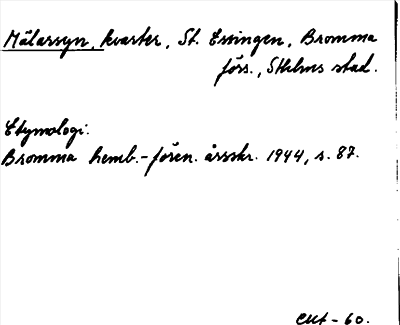 Mälarsyn, kvarter, St. Essingen, Bromma
förs., Sthlms stad.
Etymologi.
Bromma hemb.-fören. årsskr. 1944, s. 87.
-60.